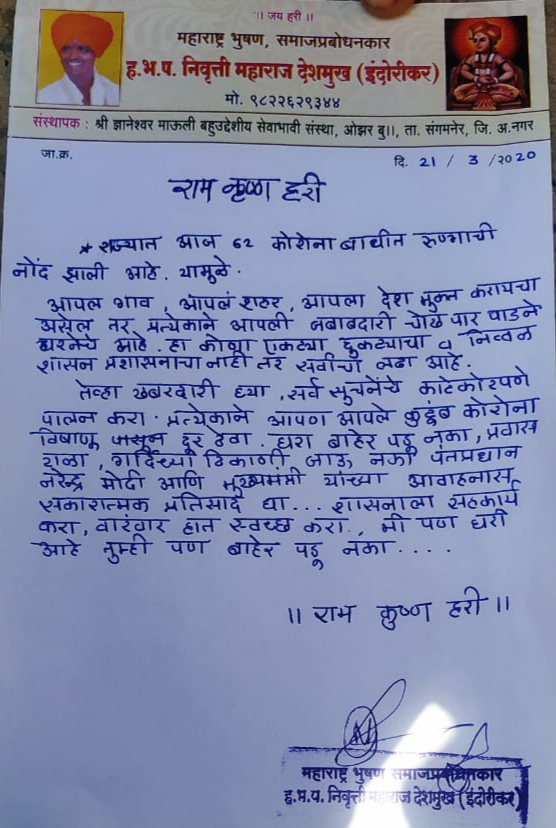 ।। जय हरी ।।
महाराष्ट्र भुषण, समाजप्रबोधनकार
ह.भ.प. निवृत्ती महाराज देशमुख (इंदोरीकर)
मो. ९८२२६२९३४४
संस्थापक : श्री ज्ञानेश्वर माऊली बहुउद्देशीय सेवाभावी संस्था, ओझर बु।।, ता. संगमनेर, जि. अ.नगर
जा.क्र. दि. 21 / 3 / 2020
राम कृष्ण हरी
* राज्यात आज 62 कोरोना बाधीत रुग्णाची
नोंद झाली आहे. यामुळे.
आपल गाव, आपलं शहर, आपला देश मुक्त करायचा
असेल तर प्रत्येकाने आपली जबाबदारी चोख पार पाडने
गरजेचे आहे. हा कोणा एकट्या दुकट्याचा व निव्वळ
शासन प्रशासनाचा नाही तर सर्वांचा लढा आहे.
तेव्हा खबरदारी घ्या, सर्व सुचनेचे काटेकोरपणे
पालन करा. प्रत्येकाने आपण आपले कुटुंब कोरोना
विषाणू पासून दूर ठेवा. घरा बाहेर पडू नका, प्रवास
टाळा, गर्दिच्या ठिकाणी जाऊ नका पंतप्रधान
नरेंद्र मोदी आणि मुख्यमंत्री यांच्या आवाहनास
सकारात्मक प्रतिसाद द्या... शासनाला सहकार्य
करा, वारंवार हात स्वच्छ करा., मी पण घरी
आहे तुम्ही पण बाहेर पडू नका....
।। राम कृष्ण हरी ।।
महाराष्ट्र भुषण समाजप्रबोधनकार
ह.भ.प. निवृत्ती महाराज देशमुख (इंदोरीकर)